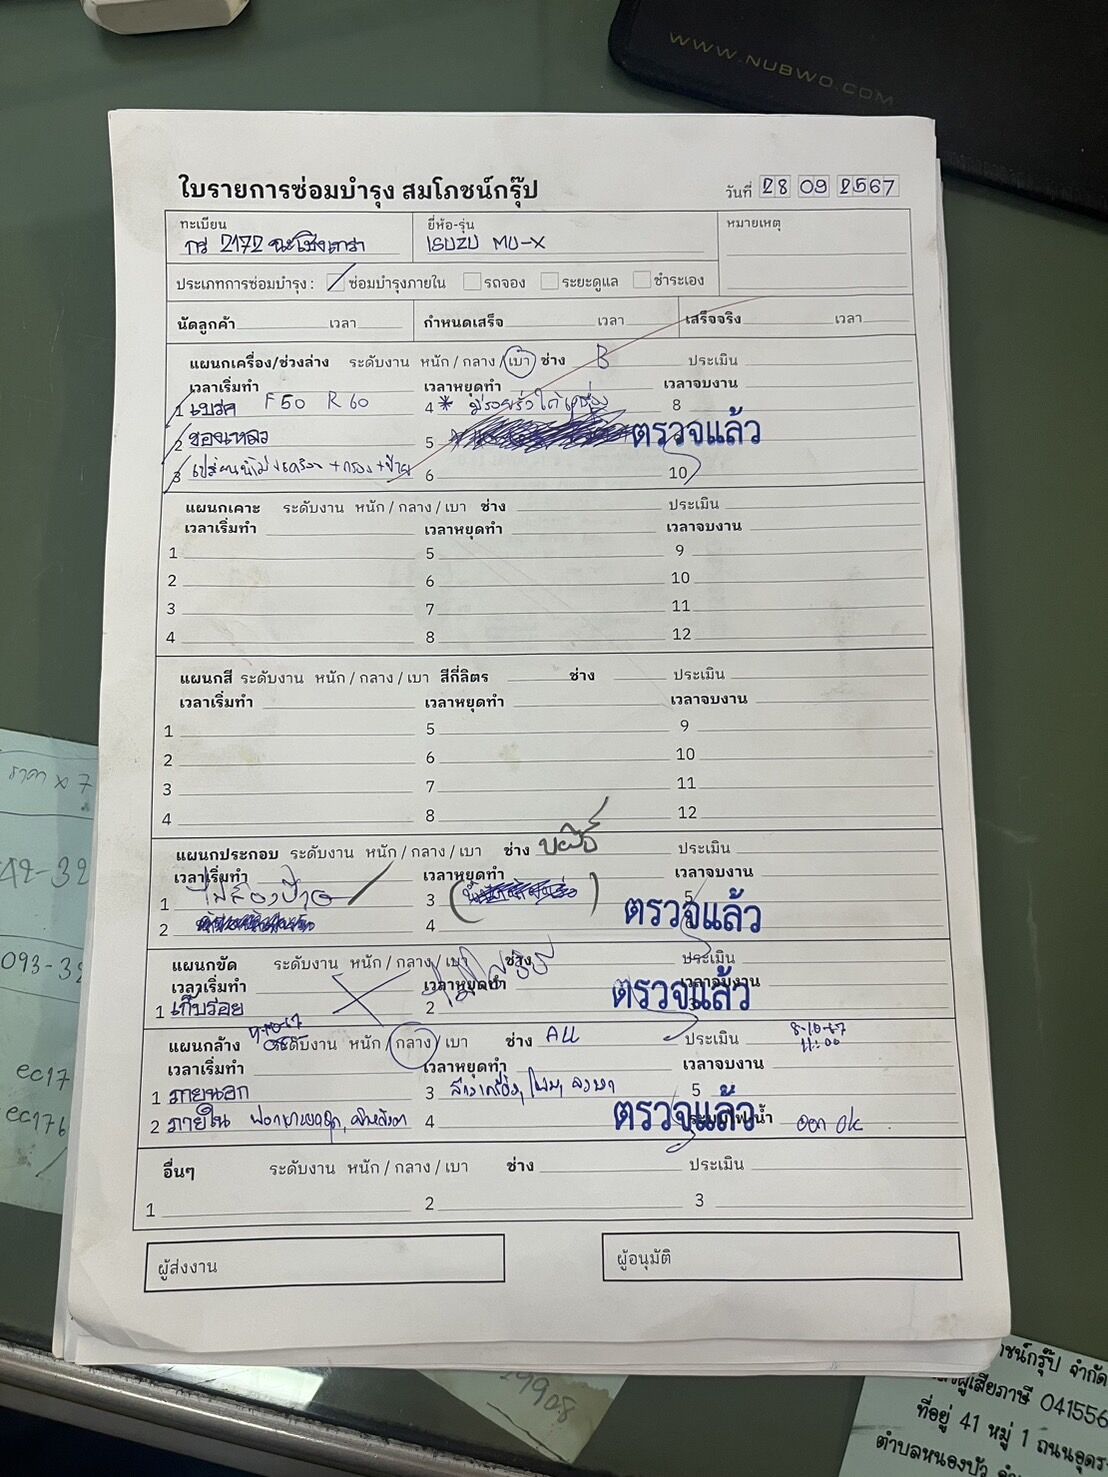 WWW.NUBWO.COM
ใบรายการซ่อมบำรุง สมโภชน์กรุ๊ป
วันที่ 28 09 2567
ทะเบียน
กว 2172 ฉะเชิงเทรา
ยี่ห้อ-รุ่น
ISUZU MU-X
หมายเหตุ
ประเภทการซ่อมบำรุง : ซ่อมบำรุงภายใน รถจอง ระยะดูแล ชำระเอง
นัดลูกค้า เวลา กำหนดเสร็จ เวลา เสร็จจริง เวลา
แผนกเครื่อง/ช่วงล่าง ระดับงาน หนัก / กลาง / เบา ช่าง B ประเมิน
เวลาเริ่มทำ เวลาหยุดทำ เวลาจบงาน
1 เบรค F50 R60 4 * มีรอยรั่วใต้เครื่อง 8
2 ของเหลว 5 ตรวจแล้ว
3 เปลี่ยนน้ำมันเครื่อง + กรอง + ป้าย 6 10
แผนกเคาะ ระดับงาน หนัก / กลาง / เบา ช่าง ประเมิน
เวลาเริ่มทำ เวลาหยุดทำ เวลาจบงาน
1 5 9
2 6 10
3 7 11
4 8 12
แผนกสี ระดับงาน หนัก / กลาง / เบา สีกี่ลิตร ช่าง ประเมิน
เวลาเริ่มทำ เวลาหยุดทำ เวลาจบงาน
1 5 9
2 6 10
3 7 11
4 8 12
แผนกประกอบ ระดับงาน หนัก / กลาง / เบา ช่าง ประเมิน
เวลาเริ่มทำ เวลาหยุดทำ
1 ไฟส่องป้าย 3 5
2 4 ตรวจแล้ว
แผนกขัด ระดับงาน หนัก / กลาง / เบา ช่าง ประเมิน
เวลาเริ่มทำ เวลาหยุดทำ เวลาจบงาน
1 เก็บรอย 2 3 ตรวจแล้ว
แผนกล้าง ระดับงาน หนัก / กลาง / เบา ช่าง ALL ประเมิน 8-10-67
11:00
เวลาเริ่มทำ เวลาหยุดทำ เวลาจบงาน
1 ภายนอก 3 5
2 ภายใน 4 ตรวจแล้ว ออก ok
อื่นๆ ระดับงาน หนัก / กลาง / เบา ช่าง ประเมิน
1 2 3
ผู้ส่งงาน ผู้อนุมัติ
ราคา x 7
42-32
093-32
ec17
ec176
19908
ชน์กรุ๊ป จำกัด
ผู้เสียภาษี 041556
ที่อยู่ 41 หมู่ 1 ถนนอุดร
ตำบลหนองบัว